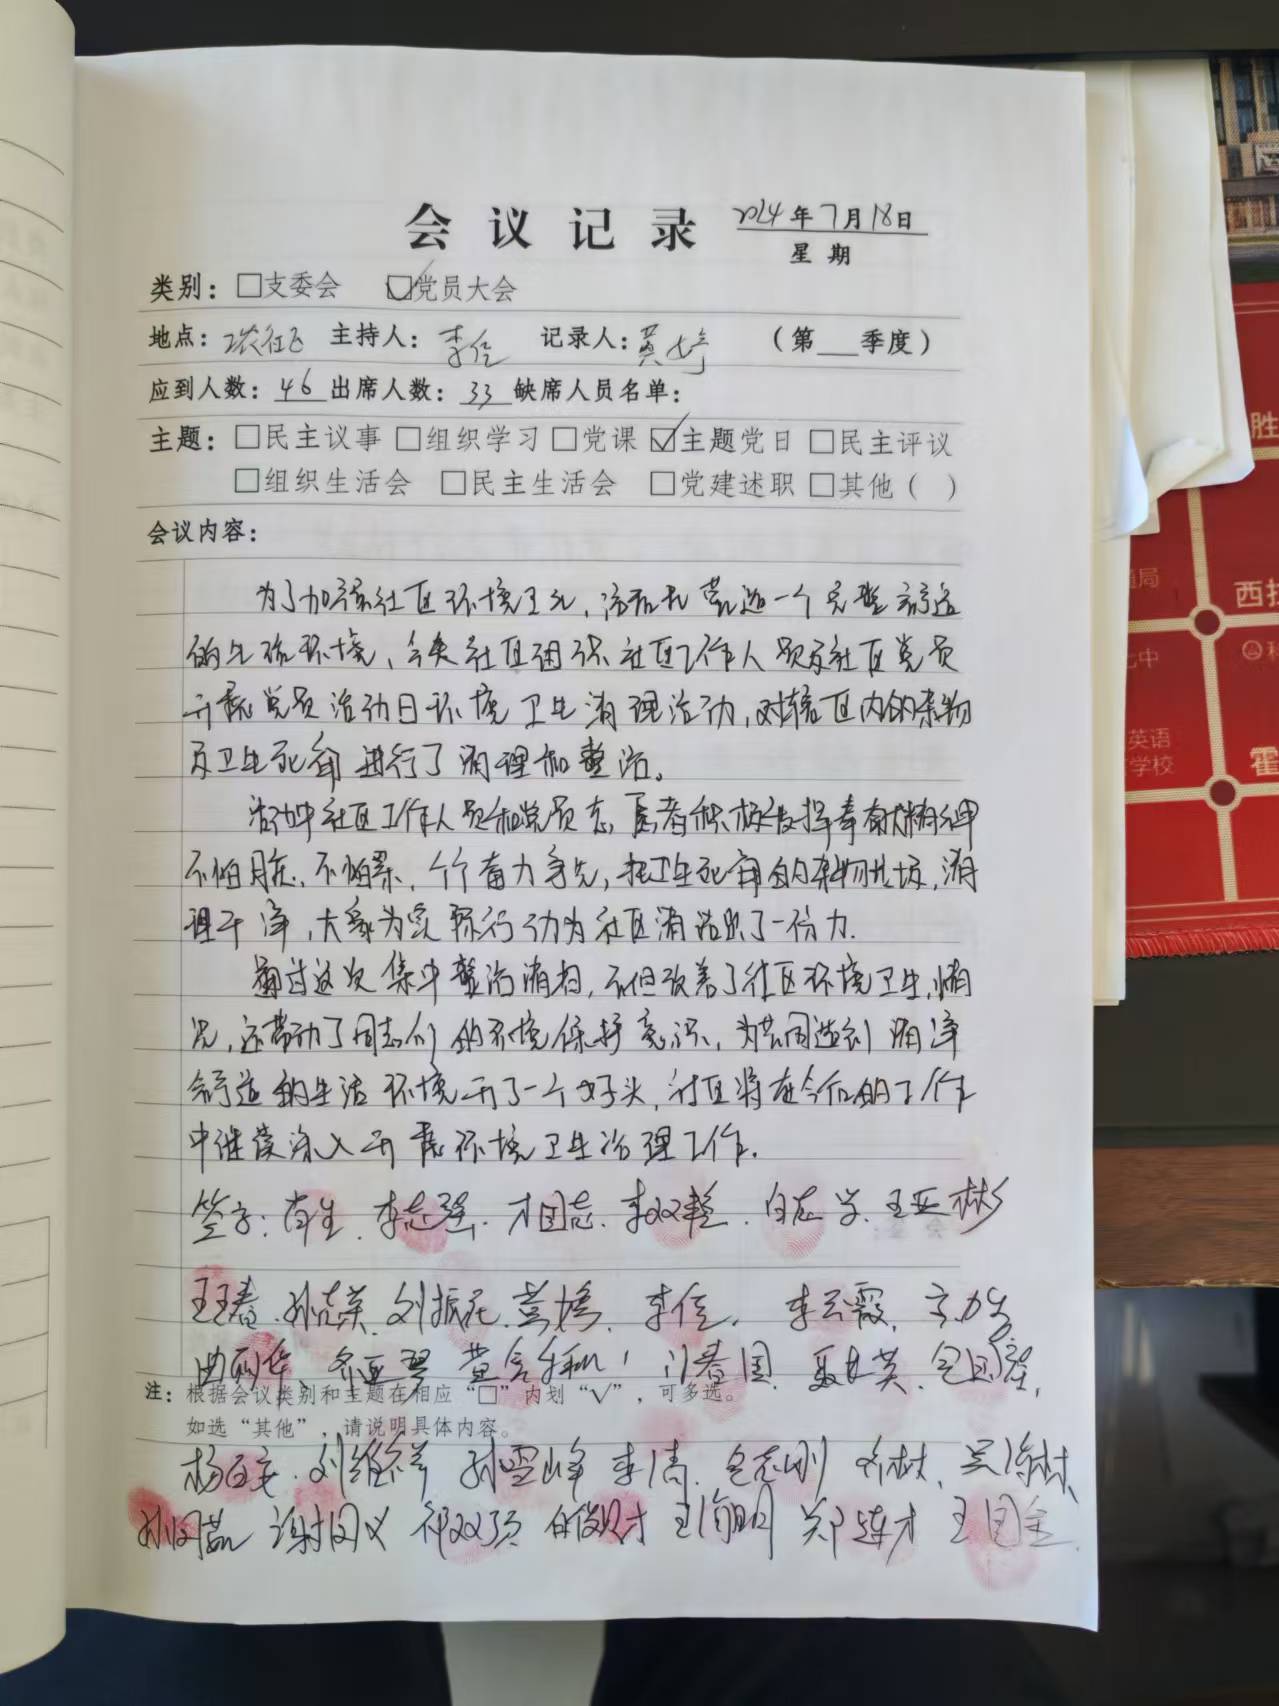 会议记录 2024年7月18日
星期
类别：□支委会 ☑党员大会
地点： 主持人：李信 记录人：黄婷 （第 季度）
应到人数：46 出席人数：33 缺席人员名单：
主题：□民主议事 □组织学习 □党课 ☑主题党日 □民主评议
□组织生活会 □民主生活会 □党建述职 □其他（ ）
会议内容：
为了加强社区环境卫生，一个完整舒适
的生活环境，今天社区组织社区工作人员及社区党员
开展党员活动日环境卫生清理活动，对辖区内的杂物
及卫生死角进行了清理和整治。
活动中社区工作人员和党员志愿者积极发挥奉献精神
不怕脏、不怕累，个个奋力争先，把卫生死角的杂物垃圾，清
理干净，大家为实际行动为社区清洁出了一份力.
通过这次集中整治清扫，不但改善了社区环境卫生，情
况，还带动了同志们的环境保护意识，为共同造到清净
舒适的生活环境开了一个好头，社区将在今后的工作
中继续深入开展环境卫生治理工作.
签字： 李志强. 才国志. 李双 . 白志学. 王亚彬
王玉春. 孙志英. 刘振花. 黄婷. 李信. 李云霞.
曲丽华. 齐亚琴 黄 门春国.
注：根据会议类别和主题在相应“□”内划“√”，可多选。
如选“其他”，请说明具体内容。
刘维 孙雪峰 李清. 包志刚
谢国义 祁双 白俊财 王 明 郑连才 王国金.
英语
学校
西拉
霍
胜